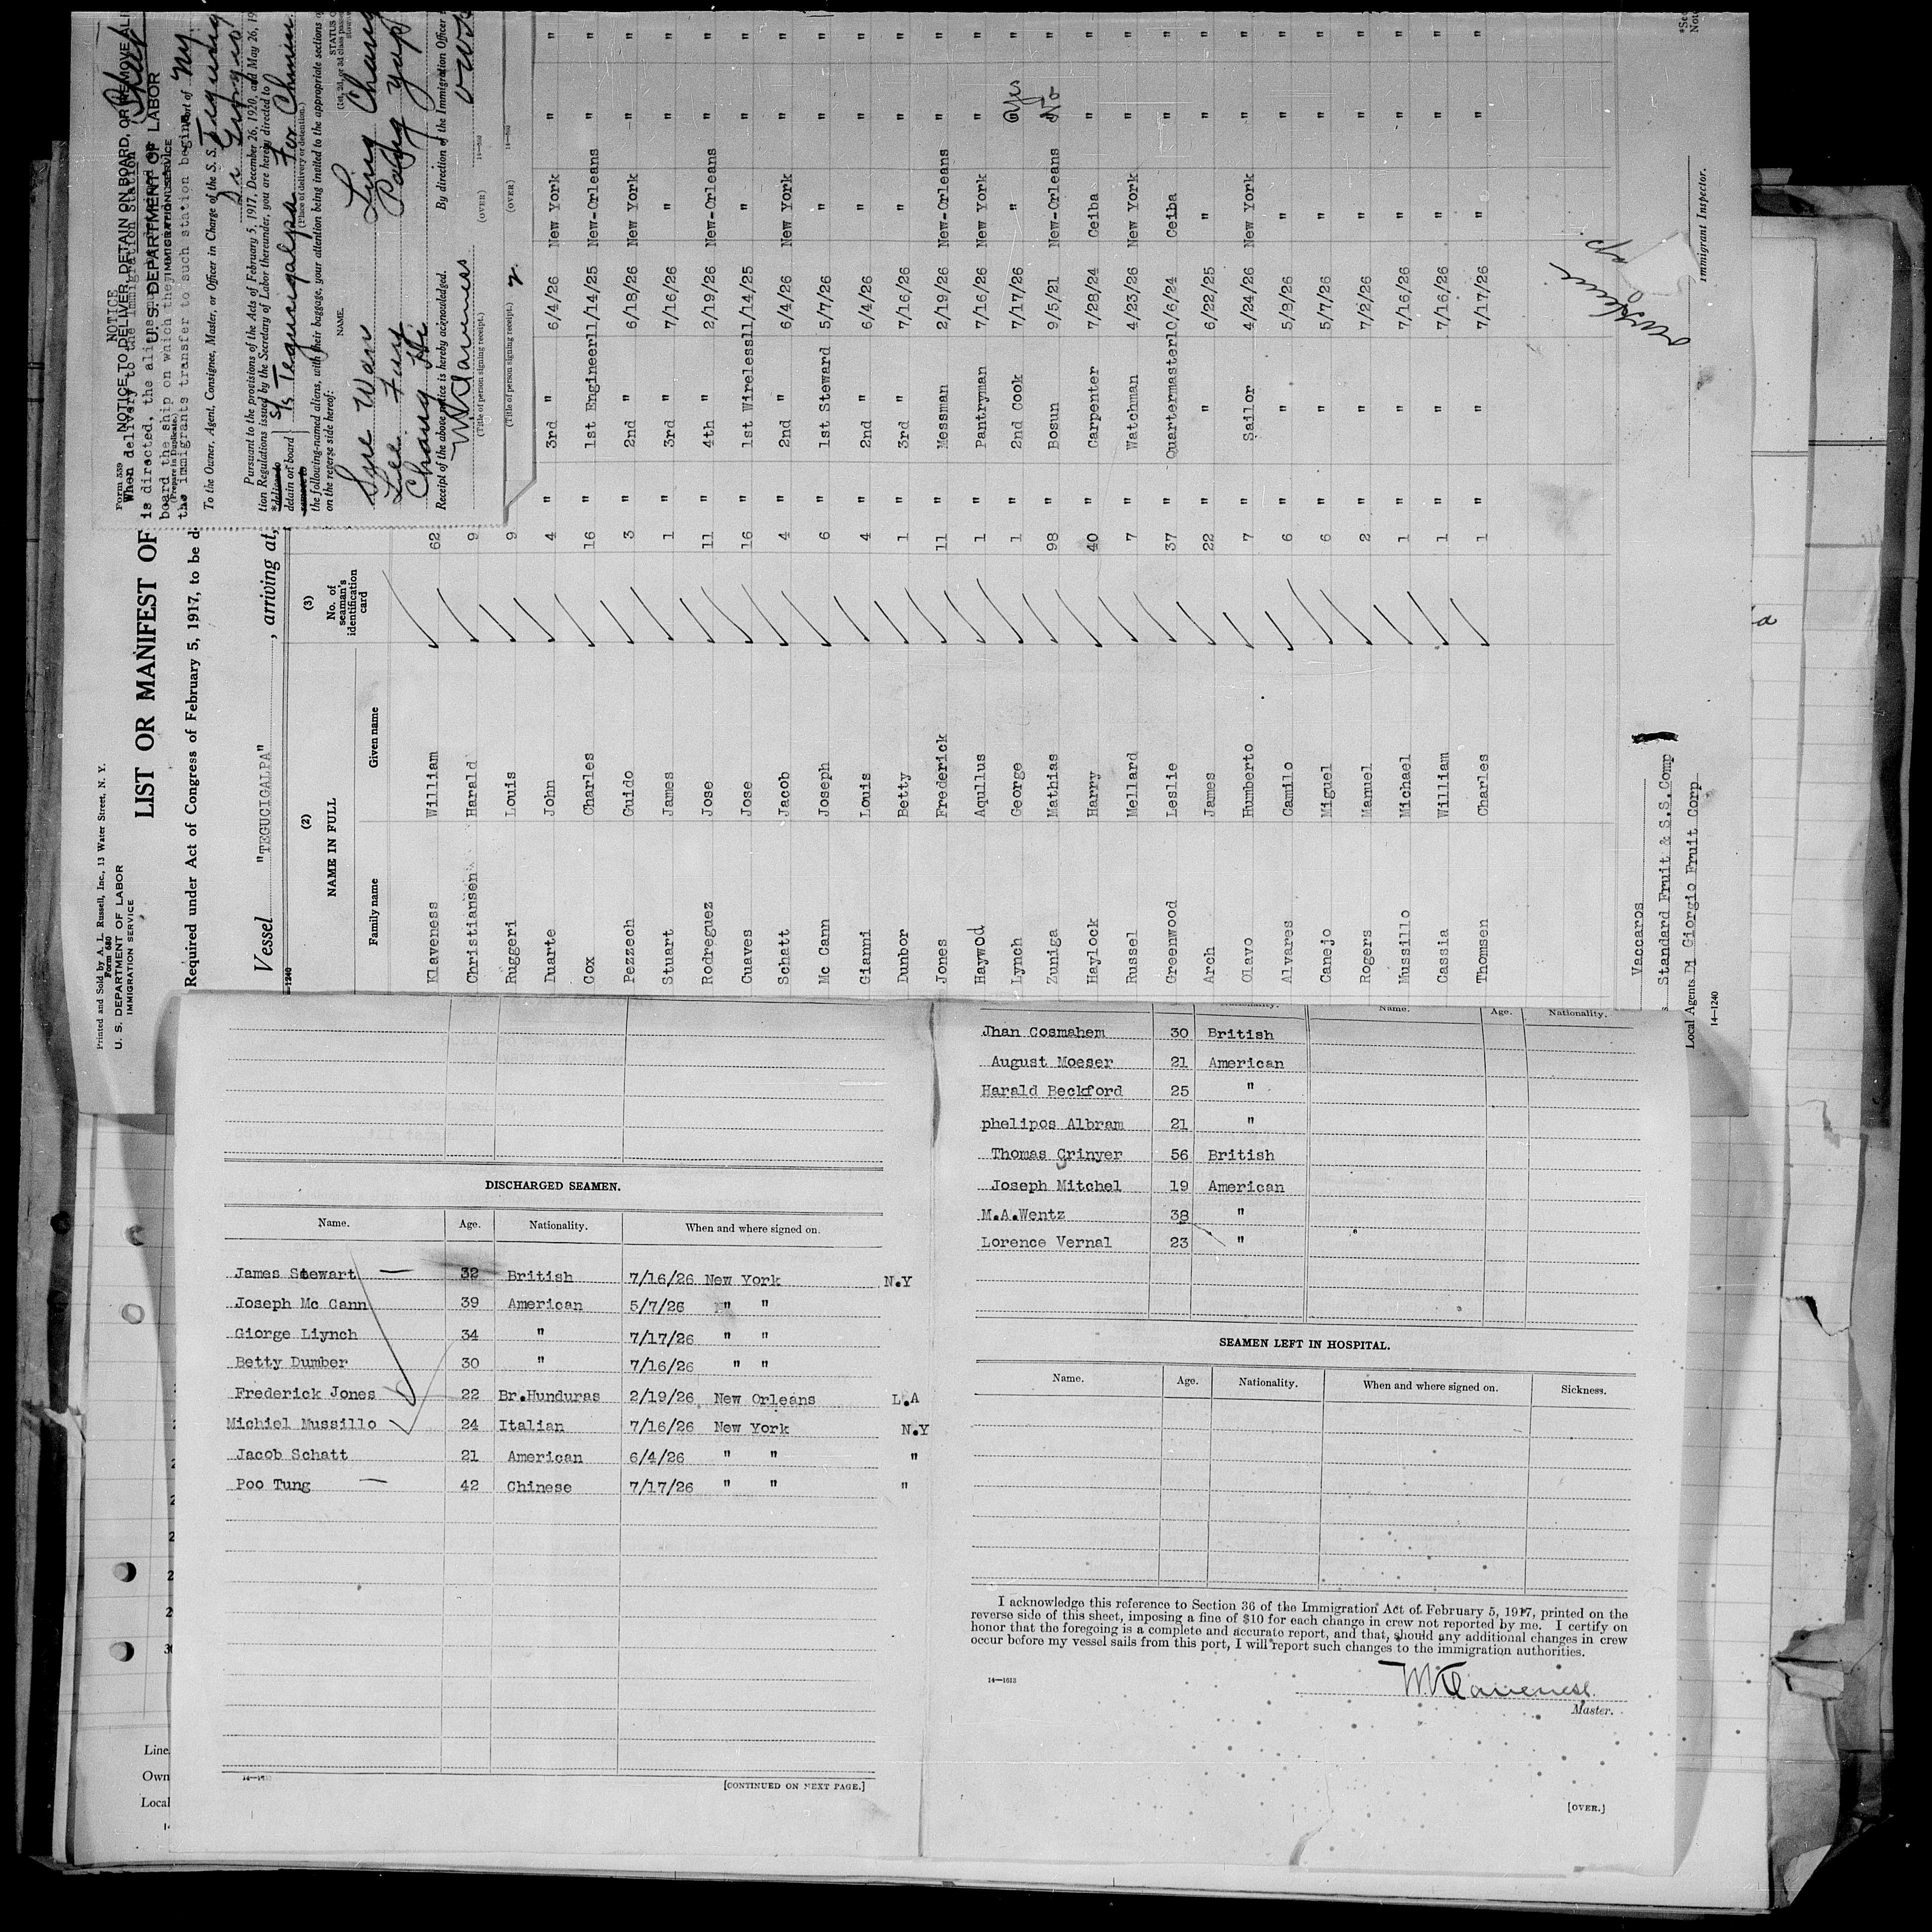 Printed and Sold by A. L. Russell, Inc., 13 Water Street, N. Y.
Form 680
U. S. DEPARTMENT OF LABOR
IMMIGRATION SERVICE
LIST OR MANIFEST OF
Required under Act of Congress of February 5, 1917, to be d
Vessel "TEGUCIGALPA", arriving at,
14-1240
(2) (3)
NAME IN FULL No. of seaman's identification card
Family name Given name
Klaveness William 62
Christiansen Harald 9
Ruggeri Louis 9
Duarte John 4 " 3rd " 6/4/26 New York " "
Cox Charles 16 " 1st Engineer 11/14/25 New-Orleans " "
Pezzech Guido 3 " 2nd " 6/18/26 New York " "
Stuart James 1 " 3rd " 7/16/26 " " "
Rodreguez Jose 11 " 4th " 2/19/26 New-Orleans " "
Cuaves Jose 16 " 1st Wireless 11/14/25 " " "
Schatt Jacob 4 " 2nd " 6/4/26 New York " "
Mc Cann Joseph 6 " 1st Steward 5/7/26 " " "
Gianni Louis 4 " 2nd " 6/4/26 " " "
Dunbor Betty 1 " 3rd " 7/16/26 " " "
Jones Frederick 11 " Messman 2/19/26 New-Orleans " "
Haywod Aqullus 1 " Pantryman 7/16/26 New York " "
Lynch George 1 " 2nd Cook 7/17/26 " Yes "
Zuniga Mathias 98 " Bosun 9/5/21 New-Orleans No "
Haylock Harry 40 " Carpenter 7/28/24 Ceiba " "
Russel Mellard 7 " Watchman 4/23/26 New York " "
Greenwood Leslie 37 " Quartermaster 10/6/24 Ceiba " "
Arch James 22 " " 6/22/25 " " "
Olavo Humberto 7 " Sailor 4/24/26 New York " "
Alvares Camilo 6 " " 5/8/26 " " "
Canejo Miguel 6 " " 5/7/26 " " "
Rogers Manuel 2 " " 7/2/26 " " "
Mussillo Michael 1 " " 7/16/26 " " "
Cassia William 1 " " 7/16/26 " " "
Thomsen Charles 1 " " 7/17/26 " " "
Vaccaros
Standard Fruit & S.S.Comp
Local Agents Di Giorgio Fruit Corp
14-1240
Immigrant Inspector.
Form 539
NOTICE
NOTICE TO DELIVER, DETAIN ON BOARD, OR REMOVE ALI
When delivery to the immigration station
is directed, the aliens
U. S. DEPARTMENT OF LABOR
IMMIGRATION SERVICE
board the ship on which they
(Prepare in Duplicate.)
the immigrants transfer to such station begins
Port of Ny
To the Owner, Agent, Consignee, Master, or Officer in Charge of the S. S.
Di Giorgio
Pursuant to the provisions of the Acts of February 5, 1917, December 26, 1920, and May 26, 19
tion Regulations issued by the Secretary of Labor thereunder, you are hereby directed to
detain on board S/S Tegucigalpa For Chinn
(Place of delivery or detention.)
the following-named aliens, with their baggage, your attention being invited to the appropriate sections o
on the reverse side hereof:
NAME. STATUS
Sue Wan Ling Chang
Lee Fung
Chang Hi
Receipt of the above notice is hereby acknowledged. By direction of the Immigration Officer
W Klaveness
(Title of person signing receipt.) (OVER) 14-560
(Title of person signing receipt.) (OVER) 14-560
DISCHARGED SEAMEN.
Name. Age. Nationality. When and where signed on.
James Stewart 32 British 7/16/26 New York N.Y
Joseph Mc Cann 39 American 5/7/26 " "
Giorge Liynch 34 " 7/17/26 " "
Betty Dumber 30 " 7/16/26 " "
Frederick Jones 22 Br.Hunduras 2/19/26 New Orleans L.A
Michiel Mussillo 24 Italian 7/16/26 New York N.Y
Jacob Schatt 21 American 6/4/26 " " "
Poo Tung 42 Chinese 7/17/26 " " "
[CONTINUED ON NEXT PAGE.]
Name. Age. Nationality.
Jhan Cosmahem 30 British
August Moeser 21 American
Harald Beckford 25 "
phelipos Albram 21 "
Thomas Grinyer 56 British
Joseph Mitchel 19 American
M.A.Wentz 38 "
Lorence Vernal 23 "
SEAMEN LEFT IN HOSPITAL.
Name. Age. Nationality. When and where signed on. Sickness.
I acknowledge this reference to Section 36 of the Immigration Act of February 5, 1917, printed on the
reverse side of this sheet, imposing a fine of $10 for each change in crew not reported by me. I certify on
honor that the foregoing is a complete and accurate report, and that, should any additional changes in crew
occur before my vessel sails from this port, I will report such changes to the immigration authorities.
14-1613
W Klaveness
Master.
[OVER.]
Line
Own
Local